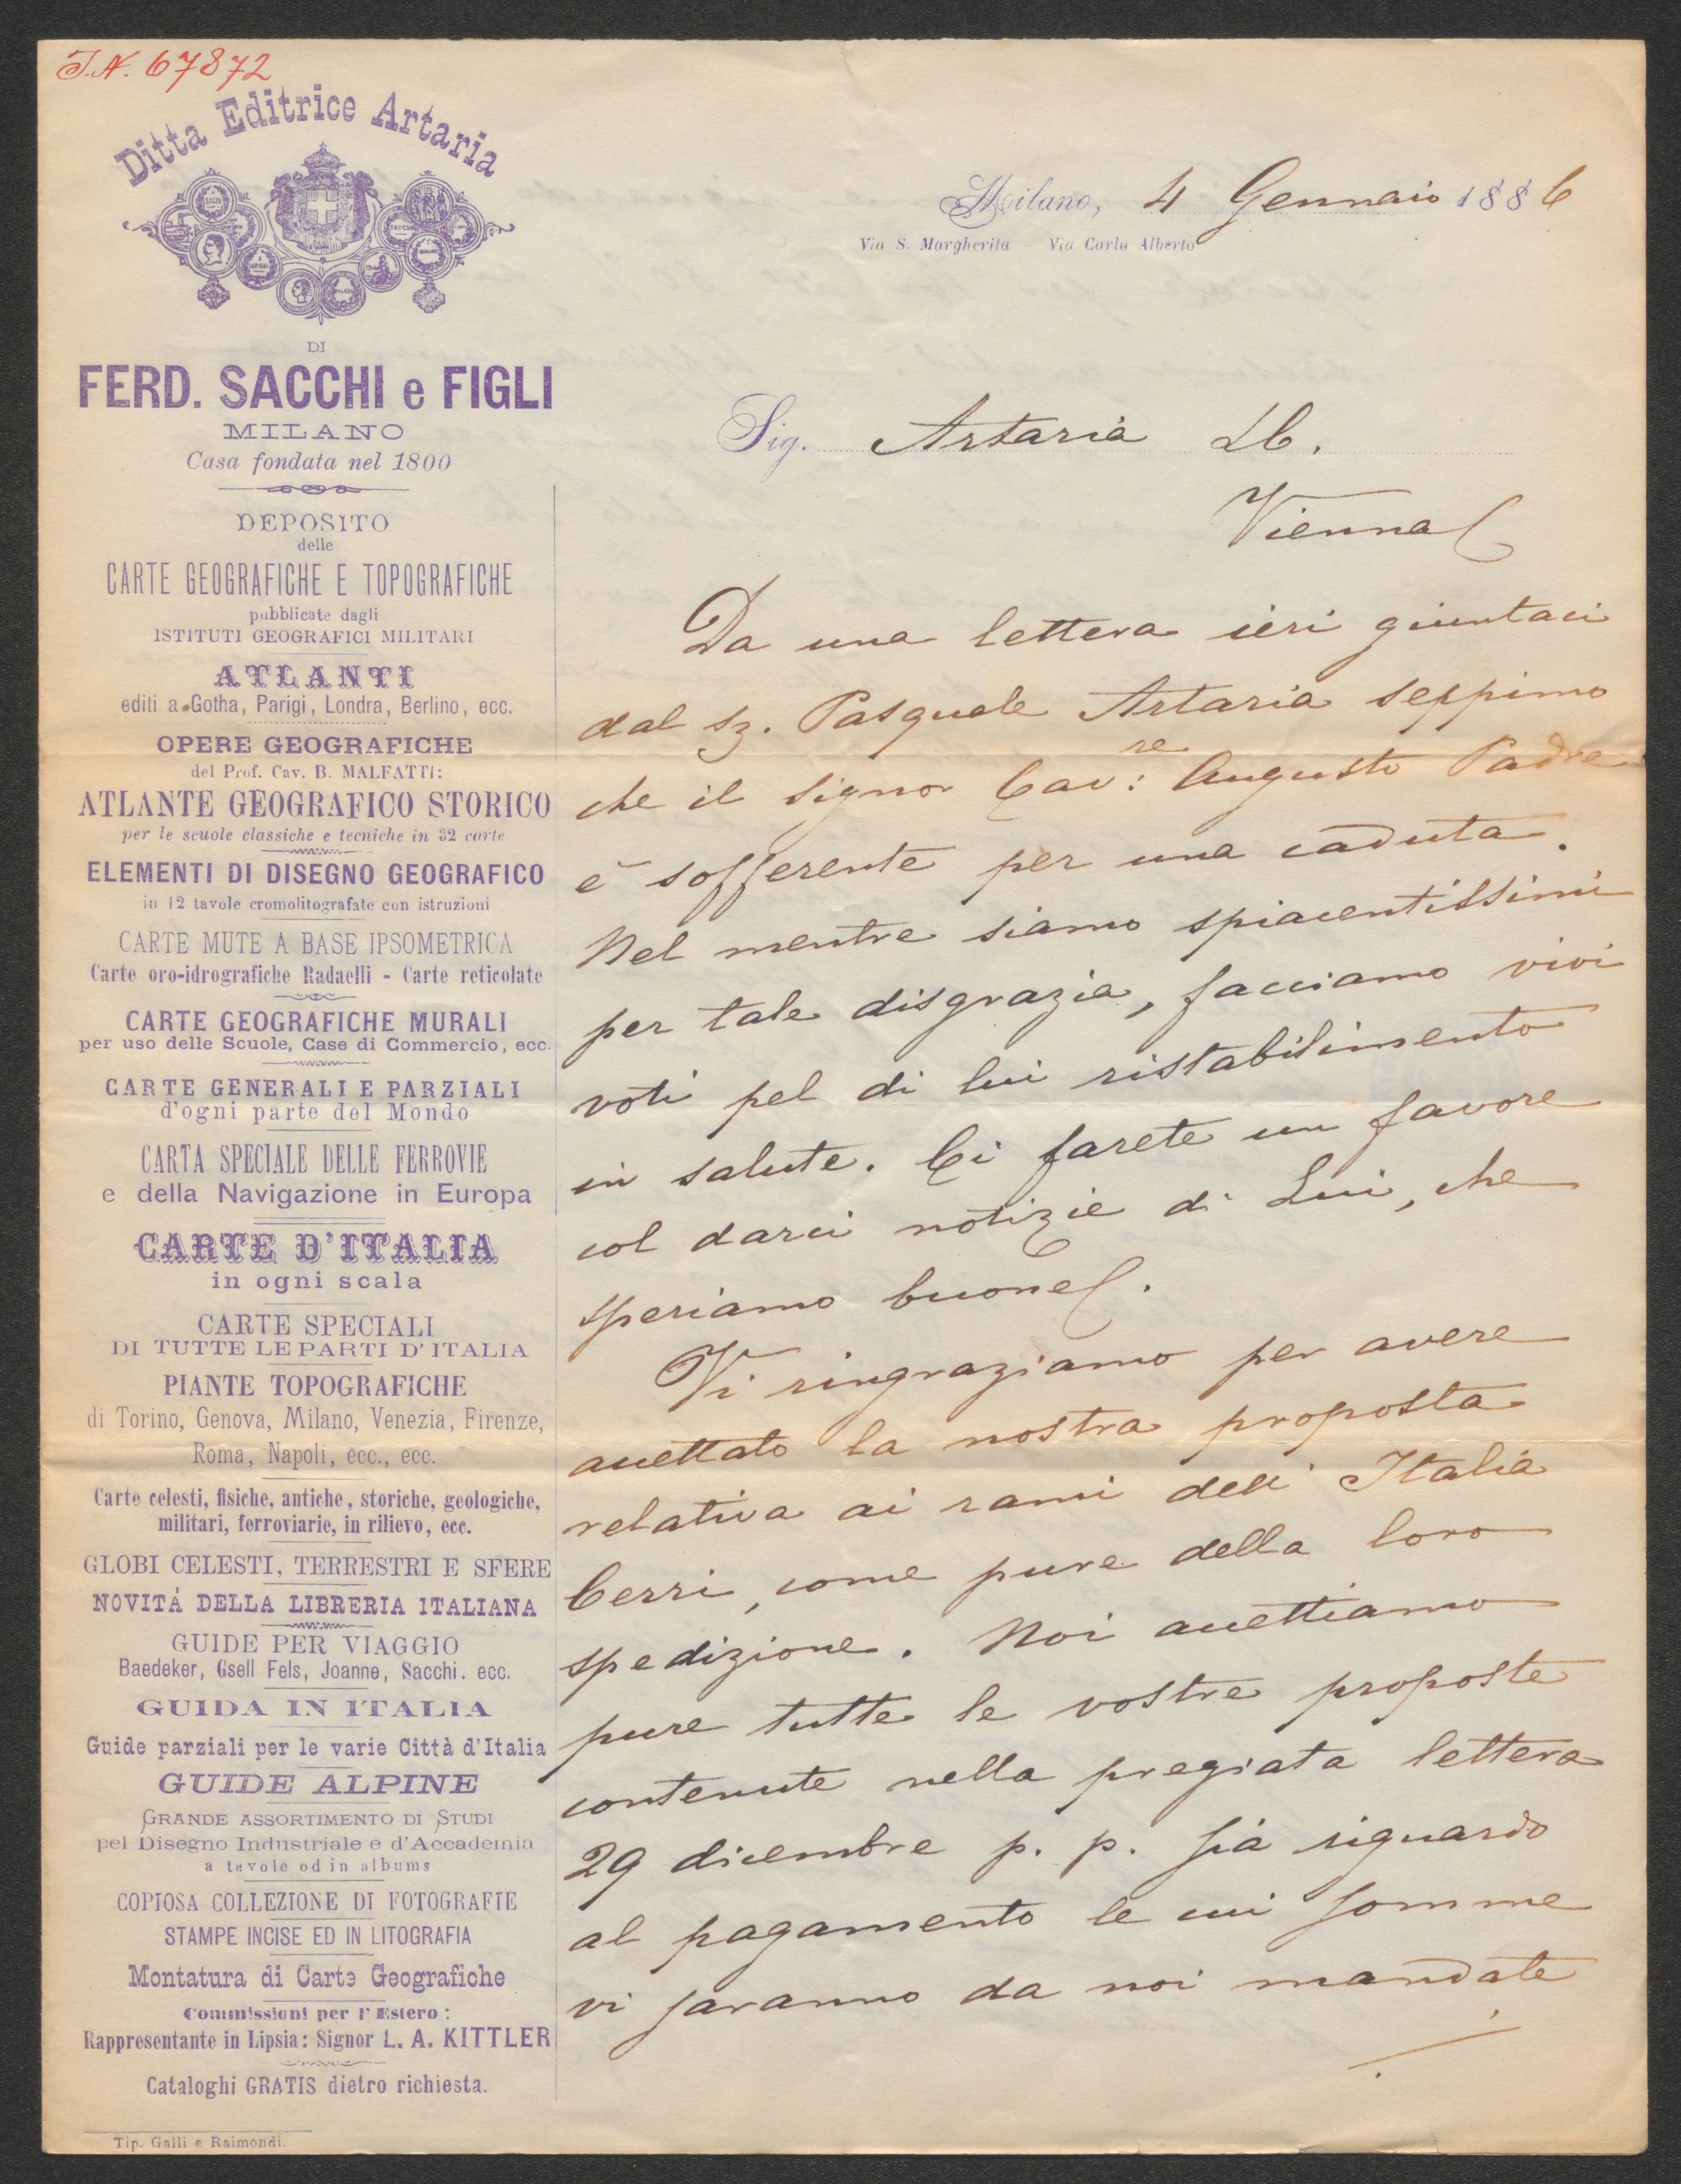 J.N. 67872
Ditta Editrice Artaria
DI
FERD. SACCHI e FIGLI
MILANO
Casa fondata nel 1800
DEPOSITO
delle
CARTE GEOGRAFICHE E TOPOGRAFICHE
pubblicate dagli
ISTITUTI GEOGRAFICI MILITARI
ATLANTI
editi a Gotha, Parigi, Londra, Berlino, ecc.
OPERE GEOGRAFICHE
del Prof. Cav. B. MALFATTI:
ATLANTE GEOGRAFICO STORICO
per le scuole classiche e tecniche in 32 carte
ELEMENTI DI DISEGNO GEOGRAFICO
in 12 tavole cromolitografate con istruzioni
CARTE MUTE A BASE IPSOMETRICA
Carte oro-idrografiche Radaelli - Carte reticolate
CARTE GEOGRAFICHE MURALI
per uso delle Scuole, Case di Commercio, ecc.
CARTE GENERALI E PARZIALI
d'ogni parte del Mondo
CARTA SPECIALE DELLE FERROVIE
e della Navigazione in Europa
CARTE D'ITALIA
in ogni scala
CARTE SPECIALI
DI TUTTE LE PARTI D'ITALIA
PIANTE TOPOGRAFICHE
di Torino, Genova, Milano, Venezia, Firenze,
Roma, Napoli, ecc., ecc.
Carte celesti, fisiche, antiche, storiche, geologiche,
militari, ferroviarie, in rilievo, ecc.
GLOBI CELESTI, TERRESTRI E SFERE
NOVITÀ DELLA LIBRERIA ITALIANA
GUIDE PER VIAGGIO
Baedeker, Gsell Fels, Joanne, Sacchi. ecc.
GUIDA IN ITALIA
Guide parziali per le varie Città d'Italia
GUIDE ALPINE
GRANDE ASSORTIMENTO DI STUDI
pel Disegno Industriale e d'Accademia
a tavole od in albums
COPIOSA COLLEZIONE DI FOTOGRAFIE
STAMPE INCISE ED IN LITOGRAFIA
Montatura di Carte Geografiche
Commissioni per l'Estero:
Rappresentante in Lipsia: Signor L. A. KITTLER
Cataloghi GRATIS dietro richiesta.
Tip. Galli e Raimondi.
Milano, 4 Gennaio 1886
Via S. Margherita Via Carlo Alberto
Sig. Artaria
Vienna
Da una lettera ieri giuntaci
dal sg. Pasquale Artaria seppimo
che il signor Cav:re Augusto Padre
è sofferente per una caduta.
Nel mentre siamo spiacentissimi
per tale disgrazia, facciamo vivi
voti pel di lui ristabilimento
in salute. Ci farete un favore
col darci notizie di Lui, che
speriamo buone.
Vi ringraziamo per avere
accettato la nostra proposta
relativa ai rami dell' Italia
Cerri, come pure della loro
spedizione. Noi accettiamo
pure tutte le vostre proposte
contenute nella pregiata lettera
29 dicembre p. p. sia riguardo
al pagamento le cui somme
vi saranno da noi mandate